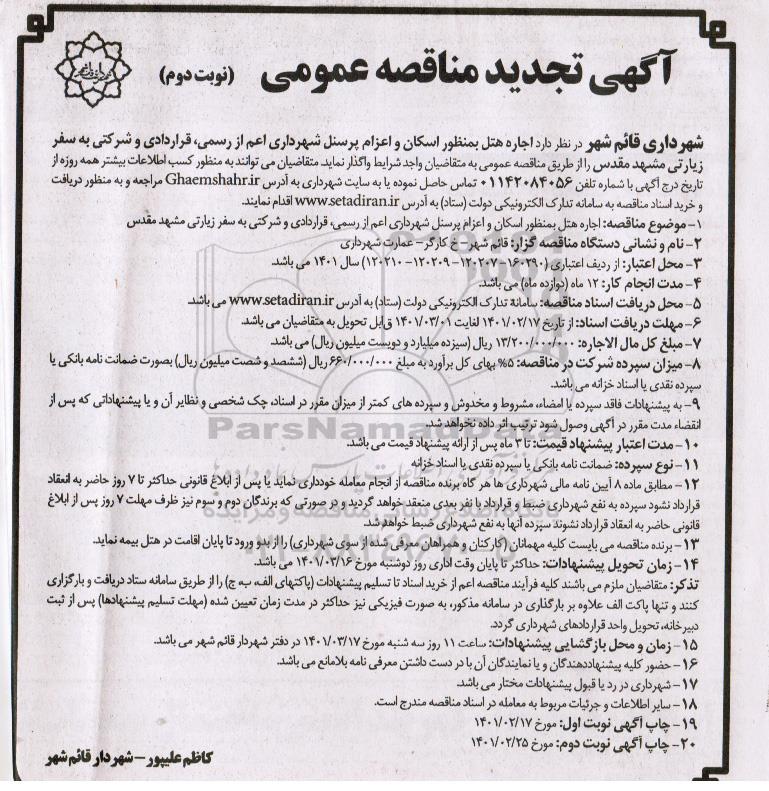 آگهی تجدید مناقصه عمومی (نوبت دوم)
شهرداری قائم شهر در نظر دارد اجاره هتل بمنظور اسکان و اعزام پرسنل شهرداری اعم از رسمی، قراردادی و شرکتی به سفر
زیارتی مشهد مقدس را از طریق مناقصه عمومی به متقاضیان واجد شرایط واگذار نماید. متقاضیان می توانند به منظور کسب اطلاعات بیشتر همه روزه از
تاریخ درج آگهی با شماره تلفن ۰۱۱۴۲۰۸۴۰۵۶ تماس حاصل نموده یا به سایت شهرداری به آدرس Ghaemshahr.ir مراجعه و به منظور دریافت
و خرید اسناد مناقصه به سامانه تدارک الکترونیکی دولت (ستاد) به آدرس www.setadiran.ir اقدام نمایند.
۱-موضوع مناقصه: اجاره هتل بمنظور اسکان و اعزام پرسنل شهرداری اعم از رسمی، قراردادی و شرکتی به سفر زیارتی مشهد مقدس
۲- نام و نشانی دستگاه مناقصه گزار: قائم شهر- خ کارگر- عمارت شهرداری
۳- محل اعتبار: از ردیف اعتباری (۱۶۰۲۹۰- ۱۲۰۲۰۷- ۱۲۰۲۰۹- ۱۲۰۲۱۰) سال ۱۴۰۱ می باشد.
۴- مدت انجام کار: ۱۲ ماه (دوازده ماه) می باشد.
۵- محل دریافت اسناد مناقصه: سامانه تدارک الکترونیکی دولت (ستاد) به آدرس www.setadiran.ir می باشد.
۶- مهلت دریافت اسناد: از تاریخ ۱۴۰۱/۰۲/۱۷ لغایت ۱۴۰۱/۰۳/۰۱ قابل تحویل به متقاضیان می باشد.
۷- مبلغ کل مال الاجاره: ۱۳/۲۰۰/۰۰۰/۰۰۰ ریال (سیزده میلیارد و دویست میلیون ریال) می باشد.
۸- میزان سپرده شرکت در مناقصه: ۵% بهای کل برآورد به مبلغ ۶۶۰/۰۰۰/۰۰۰ ریال (ششصد و شصت میلیون ریال) بصورت ضمانت نامه بانکی یا
سپرده نقدی یا اسناد خزانه می باشد.
۹- به پیشنهادات فاقد سپرده یا امضاء، مشروط و مخدوش و سپرده های کمتر از میزان مقرر در اسناد، چک شخصی و نظایر آن و یا پیشنهاداتی که پس از
انقضاء مدت مقرر در آگهی وصول شود ترتیب اثر داده نخواهد شد.
۱۰- مدت اعتبار پیشنهاد قیمت: تا ۳ ماه پس از ارائه پیشنهاد قیمت می باشد.
۱۱- نوع سپرده: ضمانت نامه بانکی یا سپرده نقدی یا اسناد خزانه
۱۲- مطابق ماده ۸ آیین نامه مالی شهرداری ها هر گاه برنده مناقصه از انجام معامله خودداری نماید یا پس از ابلاغ قانونی حداکثر تا ۷ روز حاضر به انعقاد
قرارداد نشود سپرده به نفع شهرداری ضبط و قرارداد با نفر بعدی منعقد خواهد گردید و در صورتی که برندگان دوم و سوم نیز ظرف مهلت ۷ روز پس از ابلاغ
قانونی حاضر به انعقاد قرارداد نشوند سپرده آنها به نفع شهرداری ضبط خواهد شد.
۱۳- برنده مناقصه می بایست کلیه مهمانان (کارکنان و همراهان معرفی شده از سوی شهرداری) را از بدو ورود تا پایان اقامت در هتل بیمه نماید.
۱۴- زمان تحویل پیشنهادات: حداکثر تا پایان وقت اداری روز دوشنبه مورخ ۱۴۰۱/۰۳/۱۶ می باشد.
تذکر: متقاضیان ملزم می باشند کلیه فرآیند مناقصه اعم از خرید اسناد تا تسلیم پیشنهادات (پاکتهای الف، ب، ج) را از طریق سامانه ستاد دریافت و بارگزاری
کنند و تنها پاکت الف علاوه بر بارگذاری در سامانه مذکور، به صورت فیزیکی نیز حداکثر در مدت زمان تعیین شده (مهلت تسلیم پیشنهادها) پس از ثبت
دبیرخانه، تحویل واحد قراردادهای شهرداری گردد.
۱۵- زمان و محل بازگشایی پیشنهادات: ساعت ۱۱ روز سه شنبه مورخ ۱۴۰۱/۰۳/۱۷ در دفتر شهردار قائم شهر می باشد.
۱۶- حضور کلیه پیشنهاددهندگان و یا نمایندگان آن با در دست داشتن معرفی نامه بلامانع می باشد.
۱۷- شهرداری در رد یا قبول پیشنهادات مختار می باشد.
۱۸- سایر اطلاعات و جزئیات مربوط به معامله در اسناد مناقصه مندرج است.
۱۹- چاپ آگهی نوبت اول: مورخ ۱۴۰۱/۰۲/۱۷
۲۰- چاپ آگهی نوبت دوم: مورخ ۱۴۰۱/۰۲/۲۵
کاظم علیپور- شهردار قائم شهر